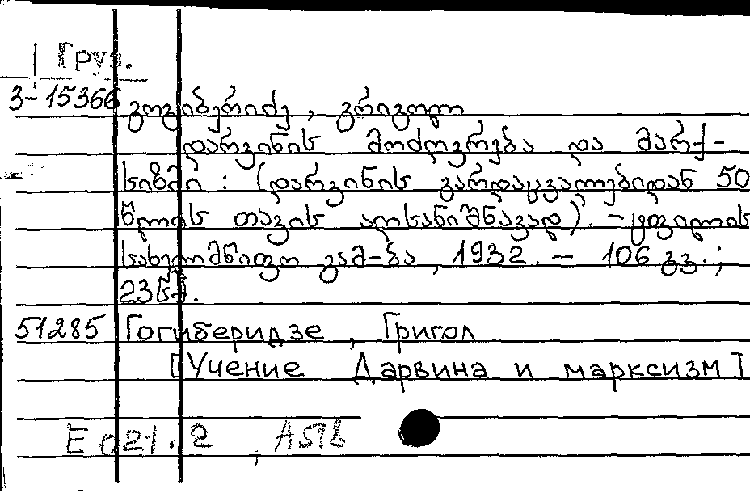 Груз.
3-15366 გოგიბერიძე, გრიგოლ
დარვინის მოძღვრება და მარქ-
სიზმი : (დარვინის გარდაცვალებიდან 50
წლის თავის აღსანიშნავად). - ტფილისი
სახელმწიფო გამ-ბა, 1932. - 106 გვ.;
23სმ.
51285 Гогиберидзе, Григол
[Учение Дарвина и марксизм]
Е 021.2, А57б